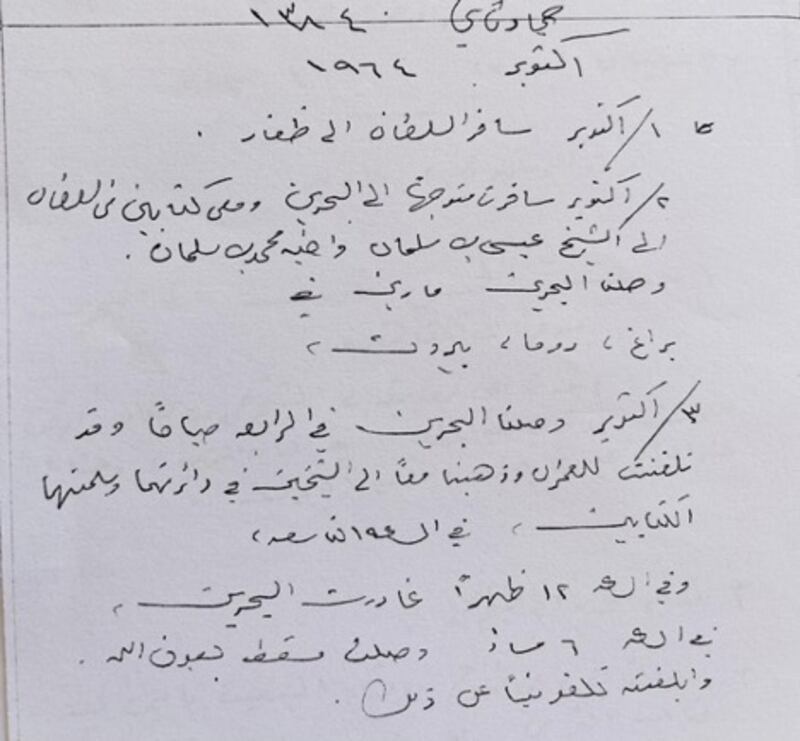 جمادى ثاني ١٣٨٤
اكتوبر ١٩٦٤
١/ اكتوبر سافر السلطان الى ظفار .
٢/ اكتوبر سافرت متوجهًا الى البحرين ومعي كتابين من السلطان
الى الشيخ عيسى بن سلمان واخيه محمد بن سلمان .
وصلنا البحرين مارين في
براغ ، روما ، بيروت ،
٣/ اكتوبر وصلنا البحرين في الرابعه صباحًا وقد
تلفنت للعمران وذهبنا معًا الى الشيخين في دائرتهما وسلمتهما
الكتابين ، في الساعه التاسعه ،
وفي الساعه ١٢ ظهرًا غادرت البحرين ،
في الساعه ٦ مساءً وصلت مسقط بعون الله .
وابلغته تلفونيًا عن ذلك .